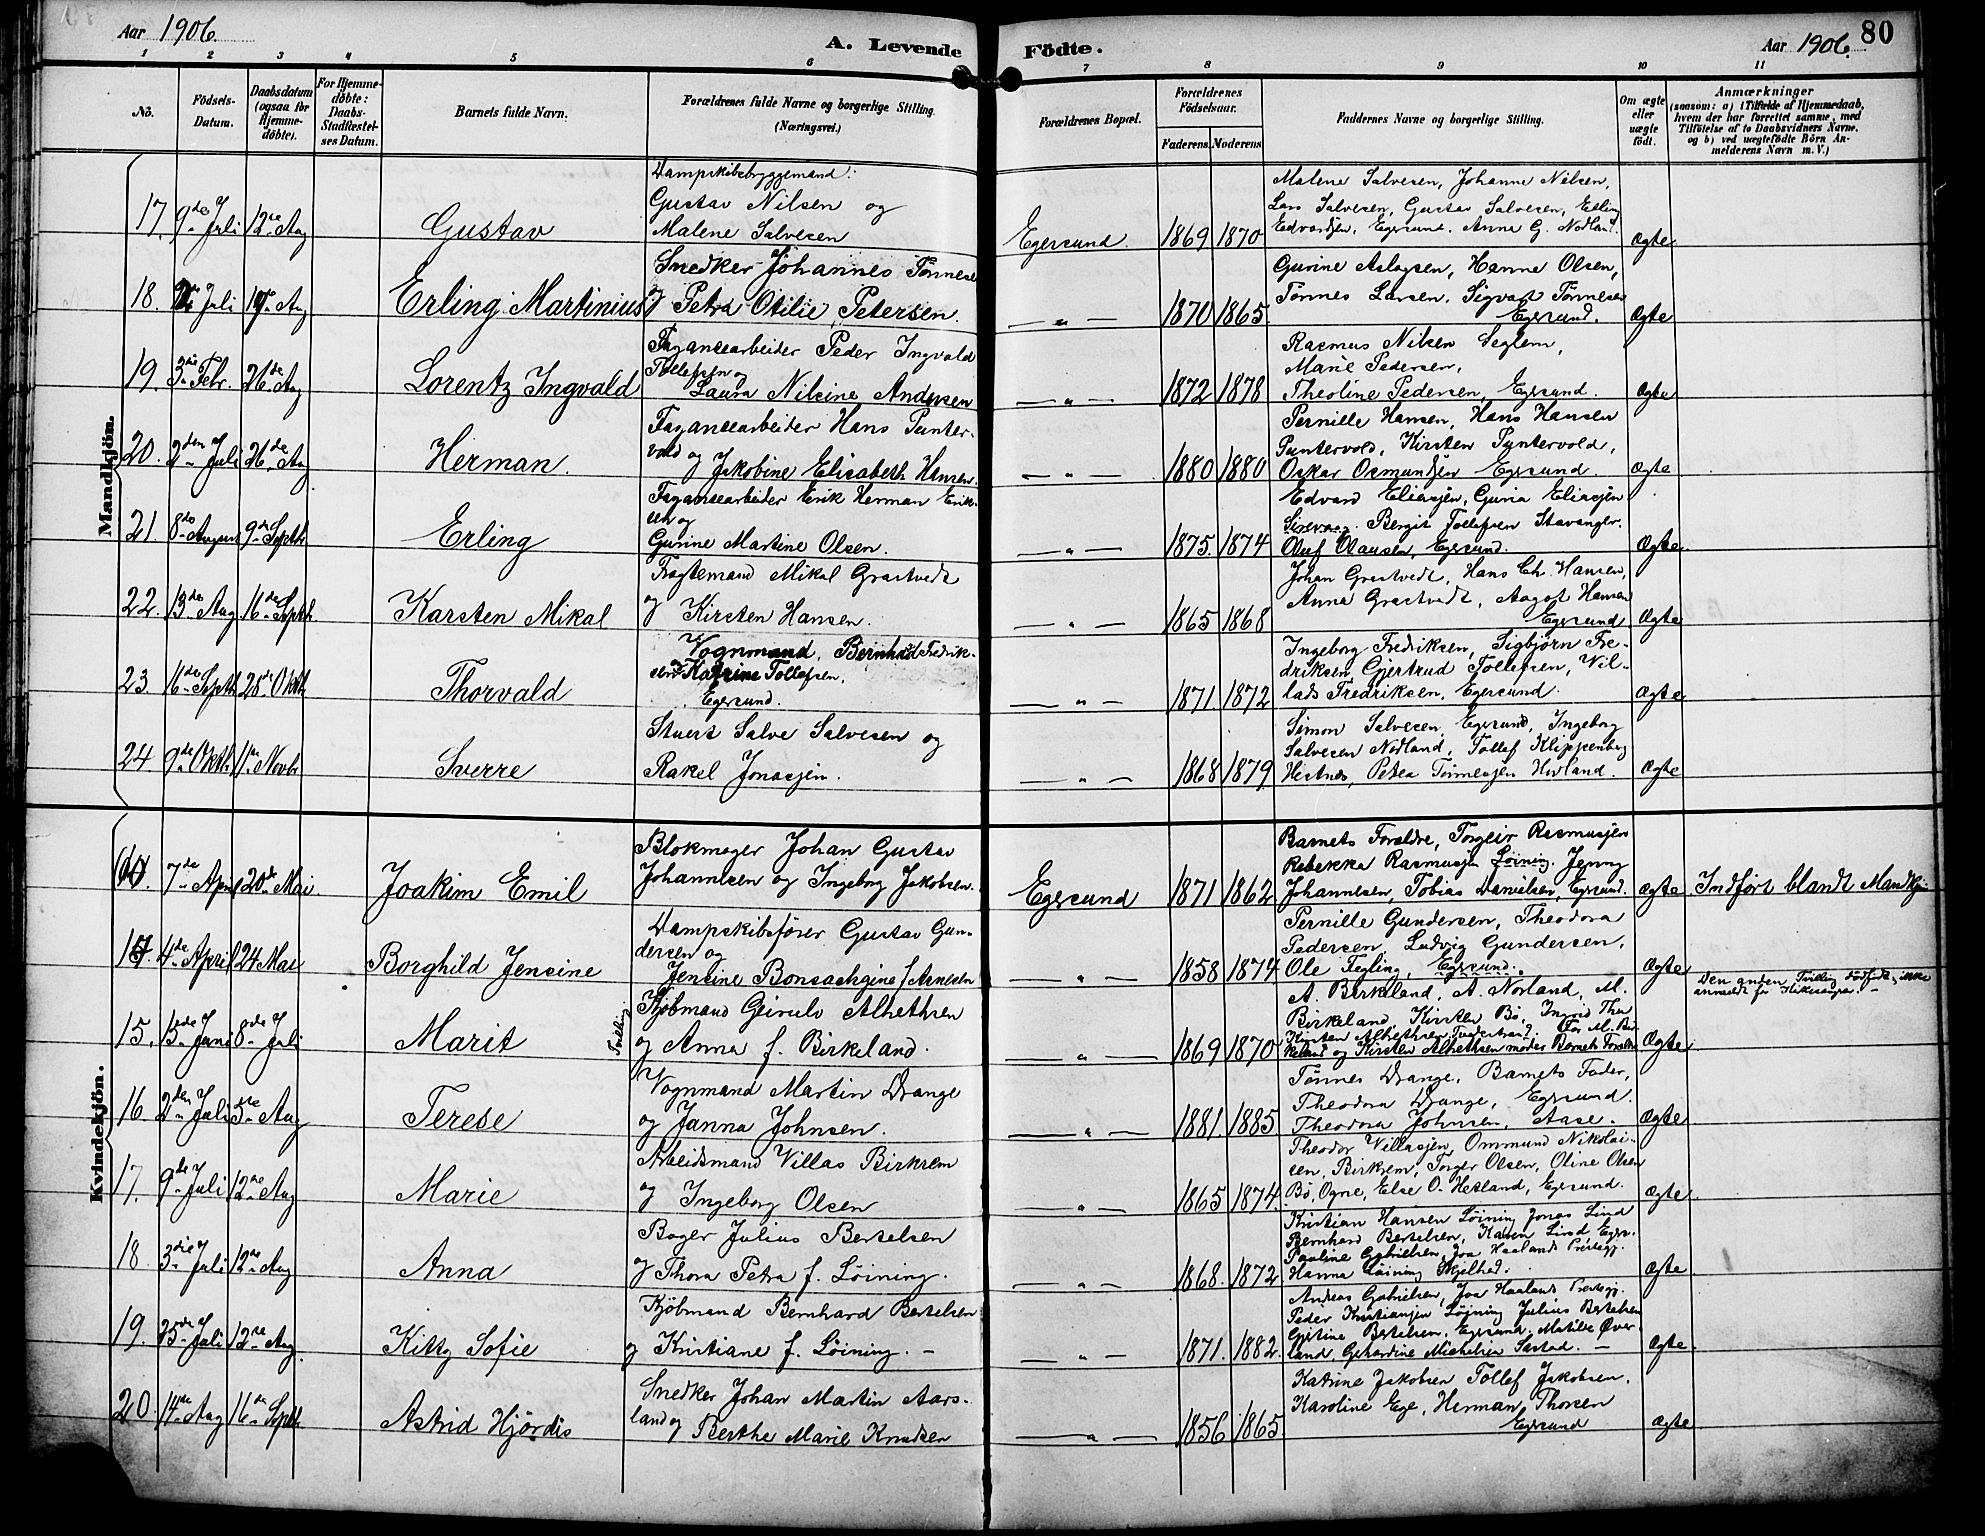 Aar 1906.
A. Levende Födte.
Aar 1906.
80
1 2 3 4 5 6 7 8 9 10 11
No.
Födsels-Datum.
Daabsdatum (ogsaa for Hjemme-döbte).
For Hjemme-døbte: Daabs-Stadfæstel-ses Datum.
Barnets fulde Navn.
Forældrenes fulde Navne og borgerlige Stilling.
(Næringsvei.)
Forældrenes Bopæl.
Forældrenes Födselsaar.
Faderens. Moderens.
Faddernes Navne og borgerlige Stilling.
Om ægte eller uægte födt.
Anmærkninger
(saasom: a) i Tilfælde af Hjemmedaab,
hvem der har forrettet samme, med
Tilföielse af to Daabsvidners Navne,
og b) ved uægtefödte Börn An-
melderens Navn m. V.)
Mandkjön.
Dampskibsbryggemand:
17. 9de Juli 12te Aug Gustav Gustav Nilsen og
Malene Salvesen
Egersund. 1869 1870
Malene Salvesen, Johanne Nilsen,
Lars Salvesen, Gustav Salvesen, Elling
Edvardsen, Egersund. Anna G. Nodland.
Ægte
18. Juli Aug Erling Martinius
Snedker Johannes Tønnesen
og Petra Otilie Petersen.
— " — 1870 1865.
Gurine Aslagsen, Hanne Olsen,
Tønnes Larsen, Sigvart Tønnesen
Egersund.
Ægte
19. 3die Febr. 26de Aug Lorentz Ingvald
Fayancearbeider Peder Ingvald
Tollefsen og
Laura Nilsine Andersen
— " — 1872 1878
Rasmus Nilsen Seglem,
Marie Pedersen,
Theoline Pedersen, Egersund.
Ægte
20. 2den Juli 26de Aug Herman.
Fayancearbeider Hans Punter-
vold og Jakobine Elisabeth Hansen
— " — 1880 1880
Pernille Hansen, Hans Hansen
Puntervold, Kirsten Puntervold,
Oskar Osmundsen Egersund.
Ægte
21. 8de August 9de Septbr Erling
Fayancearbeider Erik Herman Erik-
sen og
Gurine Martine Olsen.
— " — 1875. 1874
Edvard Eliassen, Guria Eliassen
Sirevaag. Bergit Tollefsen Stavanger.
Oluf Olausen, Egersund.
Ægte
22. 13de Aug 16de Septb Karsten Mikal
Fragtemand Mikal Grastvedt
og Kirsten Hansen.
— " — 1865 1868
Johan Grastvedt, Hans Chr. Hansen,
Anna Grastvedt, Aagot Hansen
Egersund
Ægte
23 16de Septb 28de Oktb Thorvald
Vognmand, Bernhard Fredrik-
sen og Katrine Tollefsen,
Egersund.
— " — 1871 1872
Ingeborg Fredriksen, Sigbjørn Fre-
driksen, Gjertrud Tollefsen, Wil-
lads Fredriksen, Egersund.
Ægte
24 9de Oktb 11te Novbr Sverre
Stuert Salve Salvesen og
Rakel Jonassen.
— " — 1868 1879
Simon Salvesen, Egersund, Ingeborg
Salvesen Nodland, Tollef Klippenberg
Hestnes, Petra Tønnesen Hovland.
Ægte
Kvindekjön.
7de April 20de Mai Joakim Emil
Blokmager Johan Gustav
Johannesen og Ingeborg Jakobsen.
Egersund 1871 1862
Barnets Forældre, Torgeir Rasmussen
Rebekka Rasmussen Løining. Jenny
Johannesen, Tobias Danielsen, Egersund.
Ægte Indført blandt Mandkjøn
14. 4de April 24 Mai Borghild Jensine
Dampskibsfører Gustav Gun-
dersen og
Jensine Bonsachgine f. Arnesen
— " — 1858 1874
Pernille Gundersen, Theodora
Pedersen, Ludvig Gundersen,
Ole Fegling, Egersund.
Ægte
Den anden Tvilling dødfødt, ikke
15. 13de Juni 8de Juli Marit
Tvilling
Kjøbmand Geirulv Alhethsen
og Anna f. Birkeland.
— " — 1869 1870
A. Birkeland, A. Norland, M.
Birkeland, Kirsten Bø, Ingrid Thu
Kirsten Alhethsen Tvedestrand. For M. Bir-
keland og Kirsten Alhethsen møder Barnets Forældre
Ægte
16 2den Juli 5te Aug Terese
Vognmand Martin Drange
og Janna Johnsen.
— " — 1881. 1885
Tønnes Drange, Barnets Fader,
Theodora Drange, Egersund.
Theodora Johnsen, Aase.
Ægte
17. 9de Juli 12te Aug Marie
Arbeidsmand Villas Birkrem
og Ingeborg Olsen
— " — 1865 1874.
Theodor Villassen, Ommund Nikolai-
sen, Birkrem, Torger Olsen, Oline Olsen
Bø, Ogne, Else O. Hetland, Egersund.
Ægte
18 3die Juli 12te Aug Anna
Bager Julius Bertelsen
og Thora Petra f. Løining.
— " — 1868. 1872
Kristian Hansen Løining Jonas Lind
Bernhard Bertelsen, Karen Lind, Egers.
Pauline Gabrielsen, Joa Haalands Prestegj.
Hanna Løining Skjelhed.
Ægte
19. 25de Juli 12te Aug. Kitty Sofie
Kjøbmand Bernhard Bertelsen
og Kristiane f. Løining. —
— " — 1871. 1882.
Andreas Gabrielsen, Joa Haaland Prestegj.
Peder Kristiansen Løining Julius Bertelsen
Gjertine Bertelsen, Egersund. Matilde Over-
land, Gehardine Michelsen Søstad. —
Ægte.
20. 14de Aug 16de Septb Astrid Hjördis
Snedker Johan Martin Aars-
land og
Berthe Marie Knudsen
— " — 1856 1865
Katrine Jakobsen Tollef Jakobsen,
Karoline Ege, Herman Thorsen
Egersund
Ægte